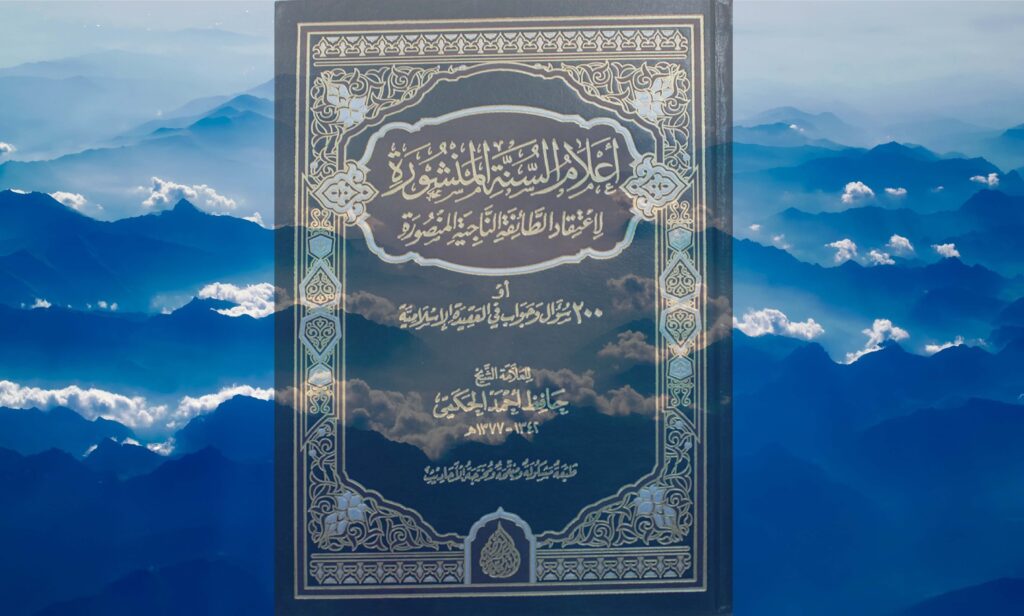 أعْلَامُ السُّنَّةِ المَنْشُورَة
لِإعْتِقَادِ الطَّائِفَةِ النَّاجِيَةِ المَنْصُورَة
أو
٢٠٠ سُؤال وَجَواب في العَقِيدَة الإسْلَاميَّة
للعَلّامَة الشَّيخ
حَافِظ أَحْمَد الحَكَمِيّ
١٣٤٢-١٣٧٧هـ
طَبعَة وَمُنَقَّحَة وَمُخَرَّجَة الأَحَادِيث